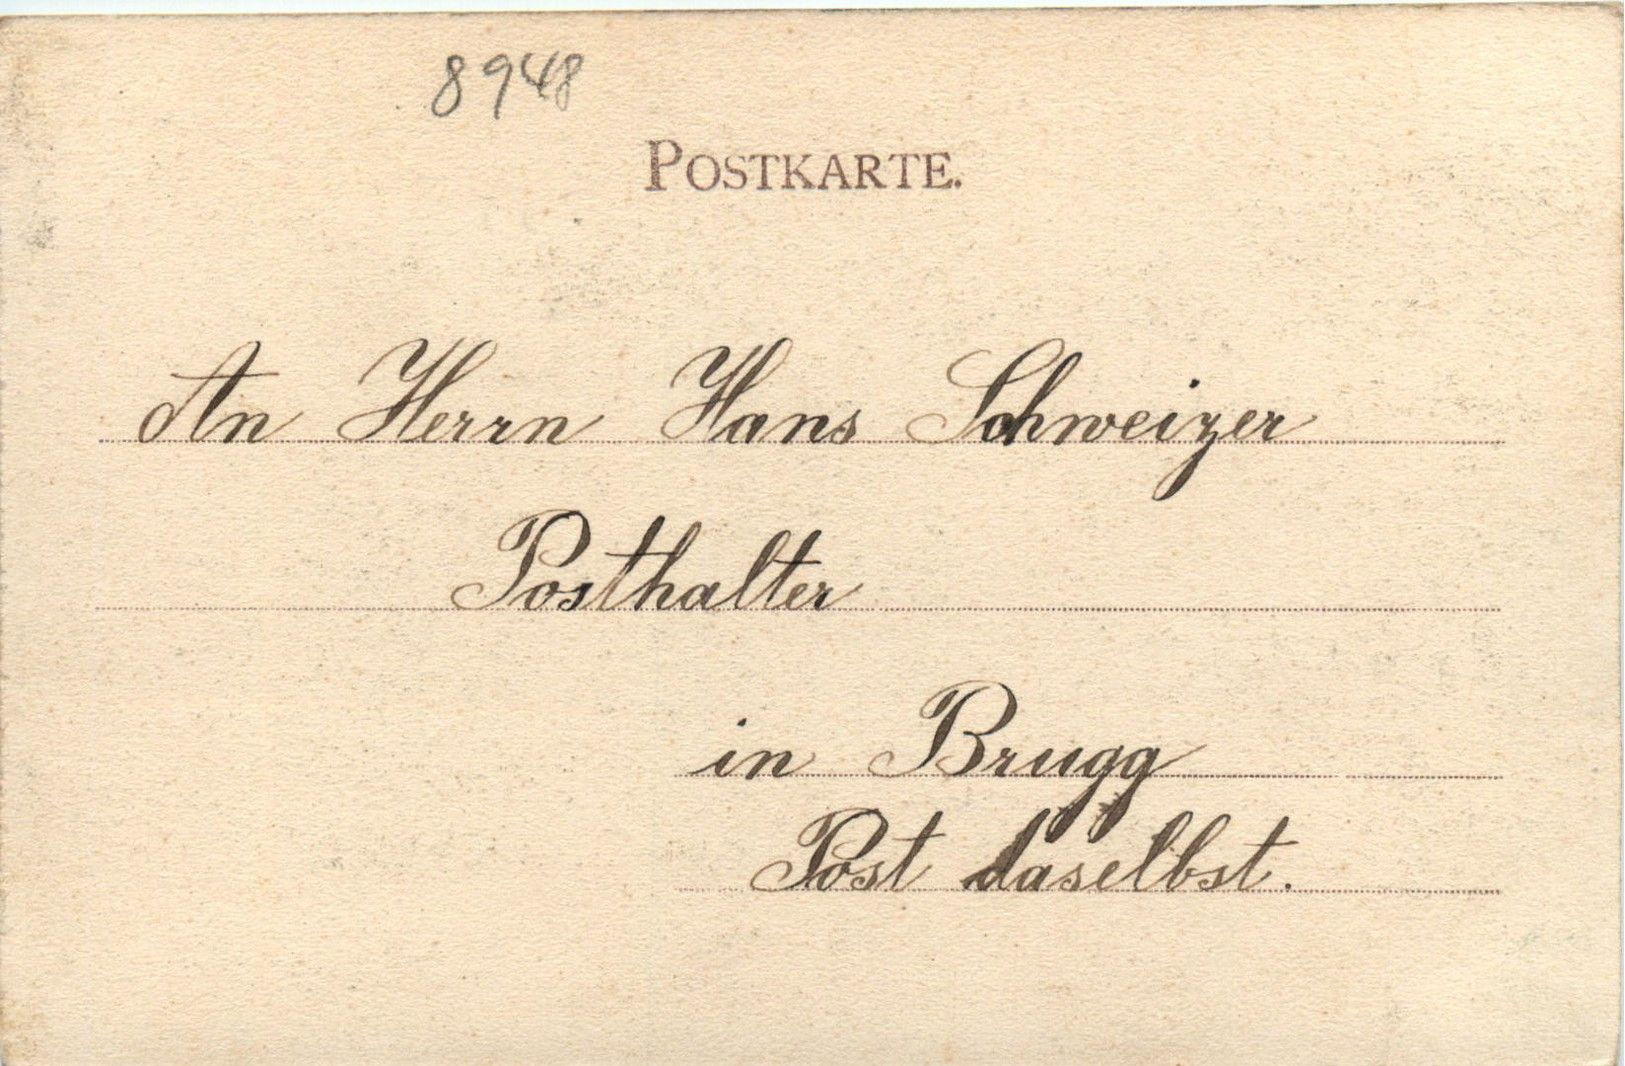 8948
POSTKARTE.
An Herrn Hans Schweizer
Posthalter
in Brugg
Post daselbst.